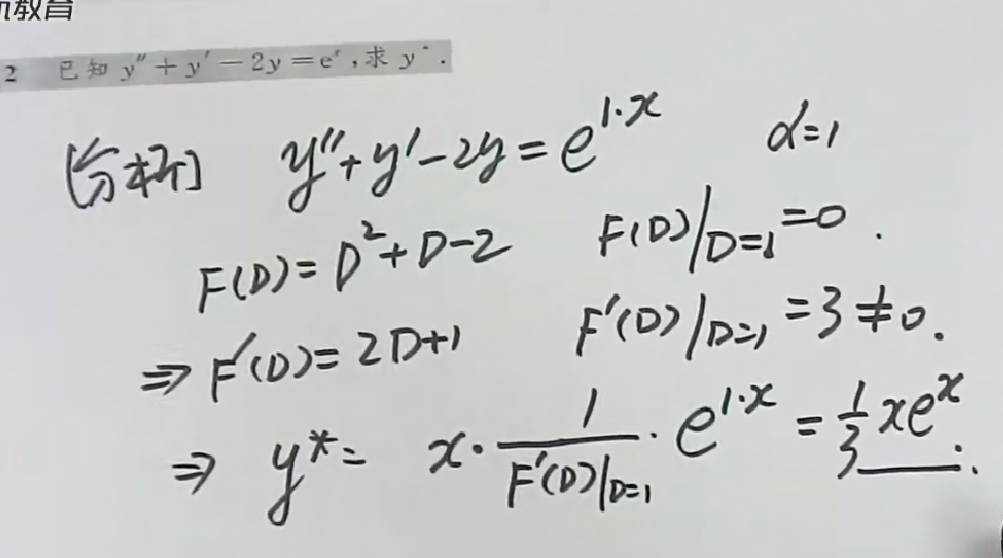 教育
2 已知 y″+y′−2y=eˣ,求 y*.
[分析] y″+y′−2y=e^{1·x} α=1
F(D)=D²+D−2 F(D)|_{D=1}=0.
⇒F′(D)=2D+1 F′(D)|_{D=1}=3≠0.
⇒ y*= x·\frac{1}{F′(D)|_{D=1}}·e^{1·x}=\frac{1}{3}xeˣ.